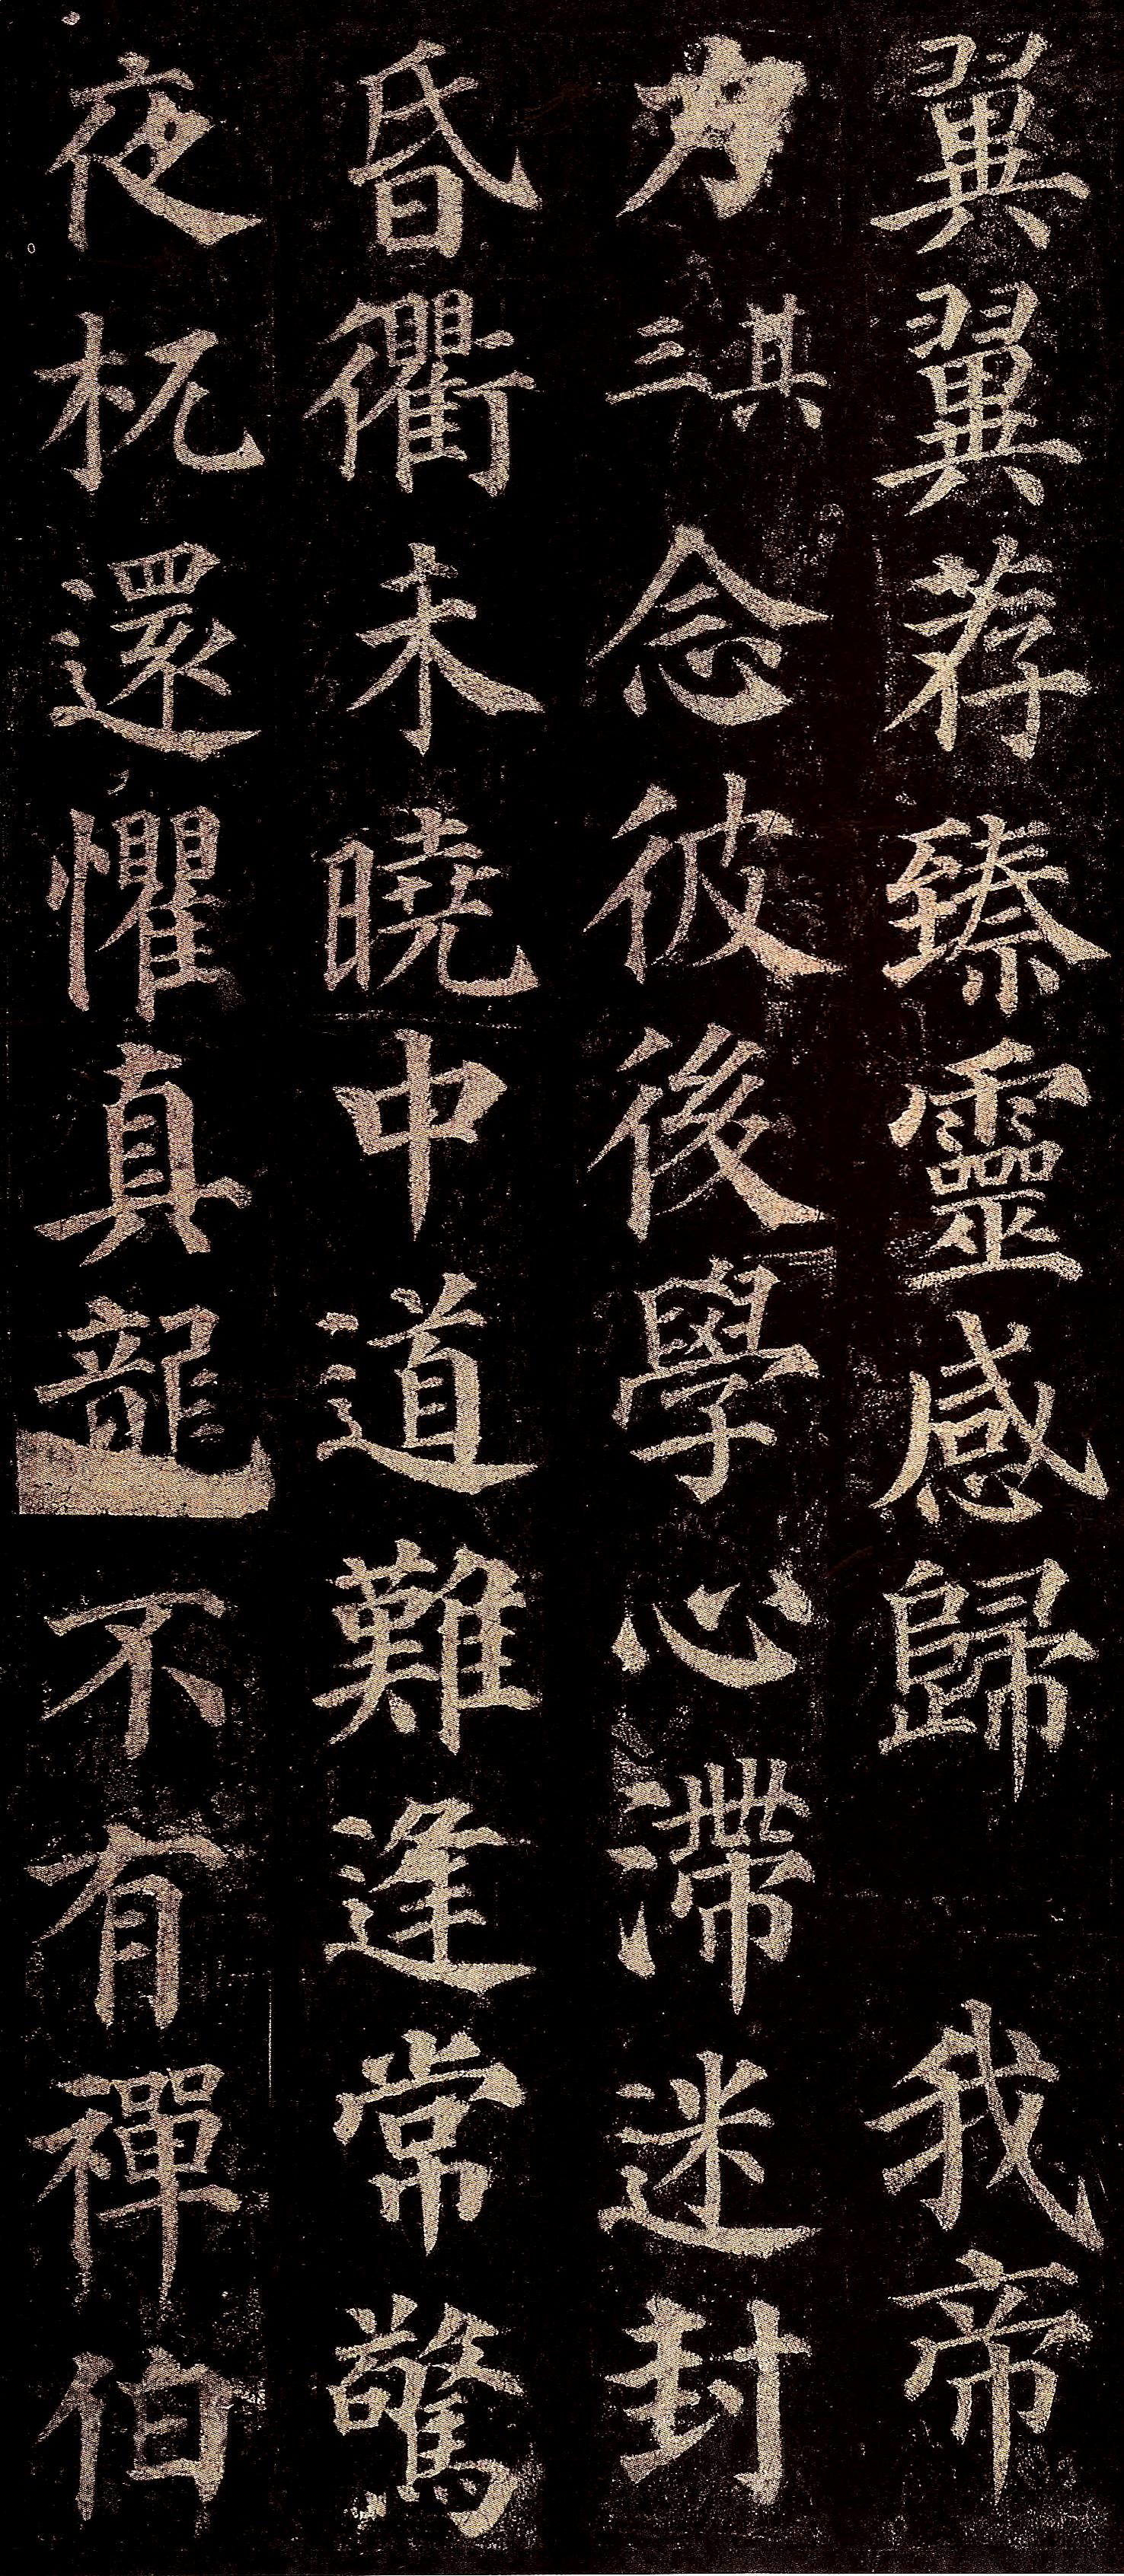 翼翼荐臻靈感歸我帝
力其三念彼後學心滯迷封
昏衢未曉中道難逢常驚
夜杌還懼真龍不有禪伯